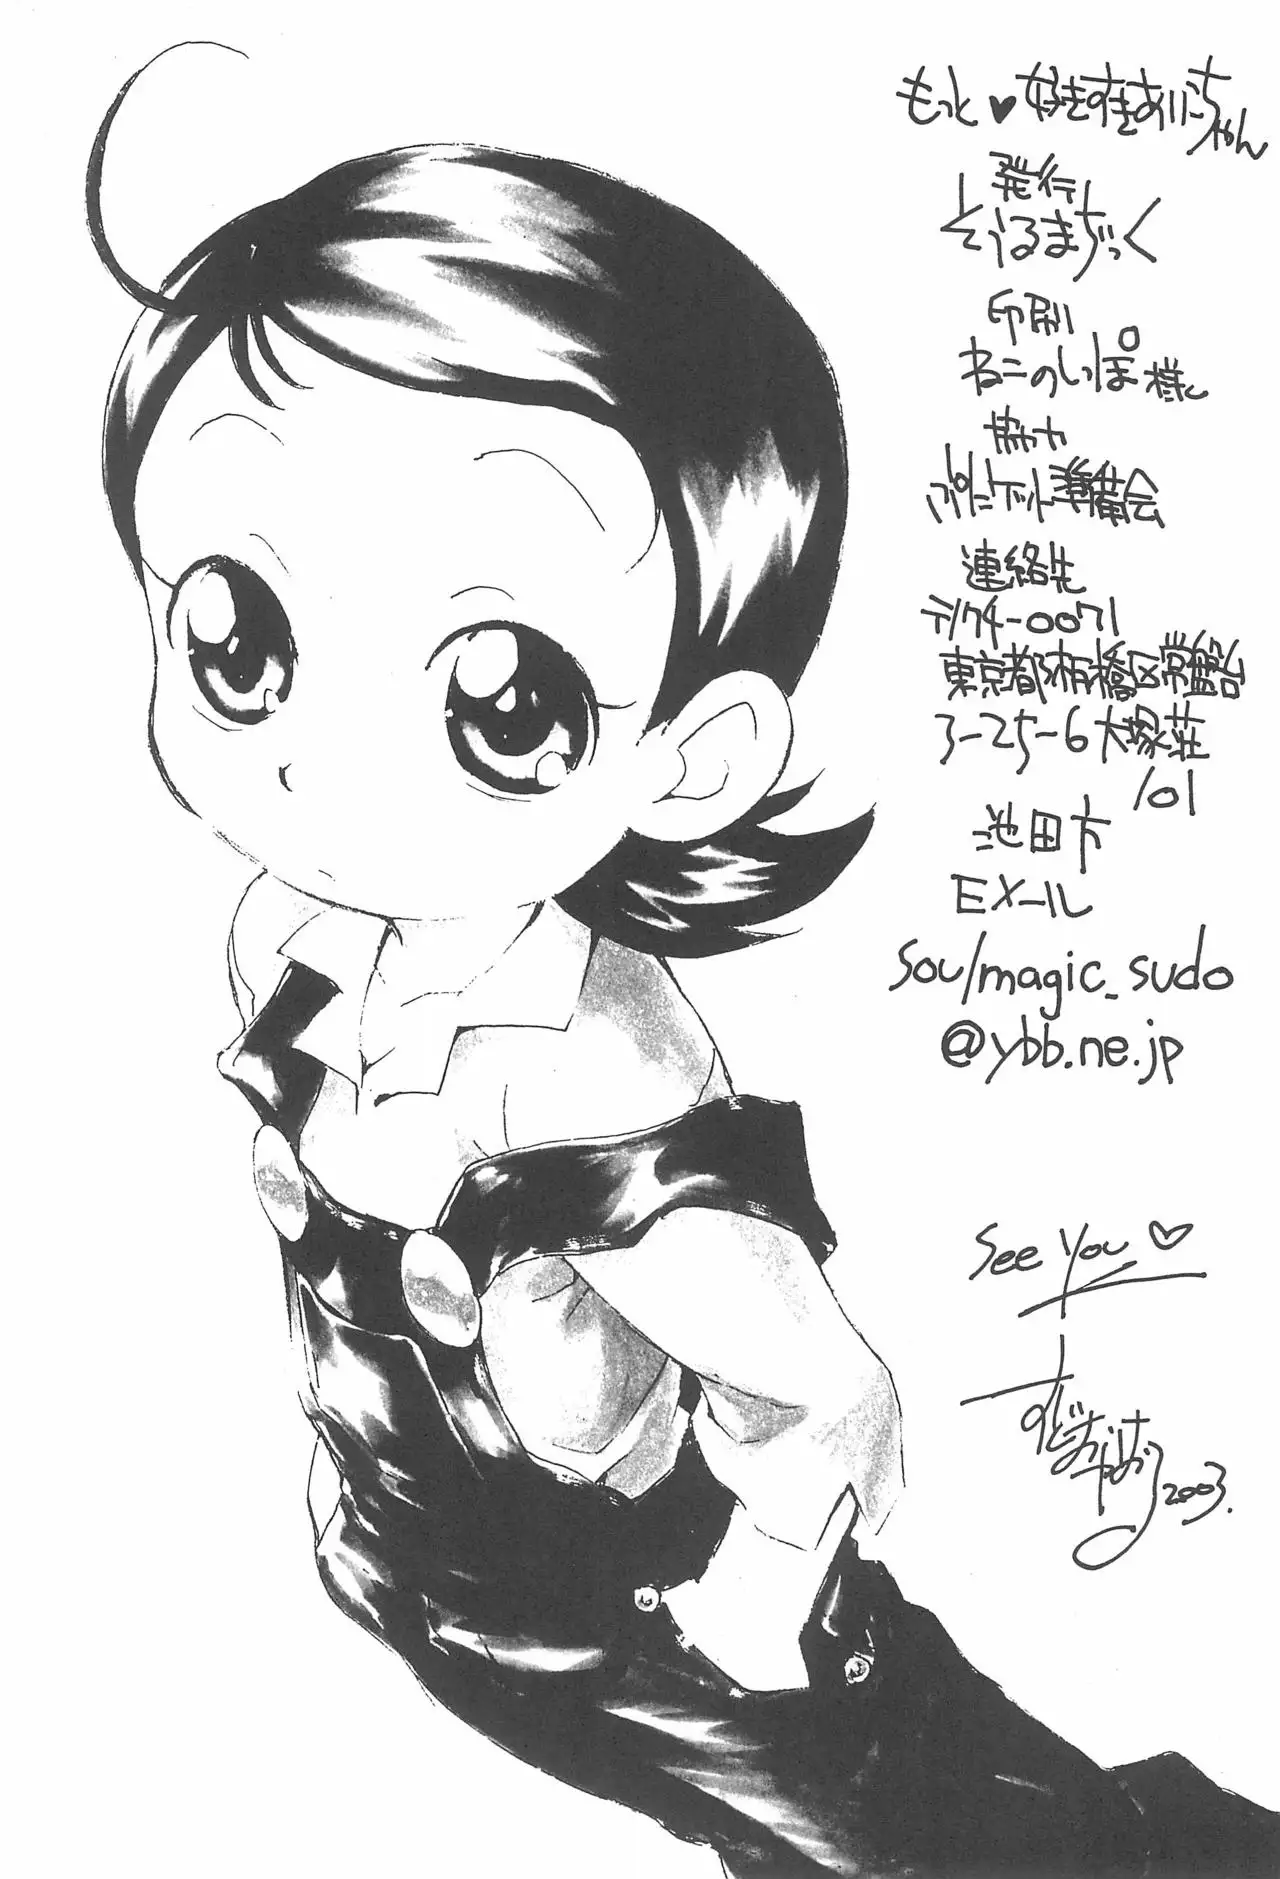 もっと♥好きすきあいこちゃん
発行
そうるまぢっく
印刷
ねこのしっぽ様
協力
ぷにケット準備会
連絡先
〒174-0071
東京都板橋区常盤台
3-25-6大塚荘
101
池田方
Eメール
soulmagic_sudo
@ybb.ne.jp
See You♡
2003.